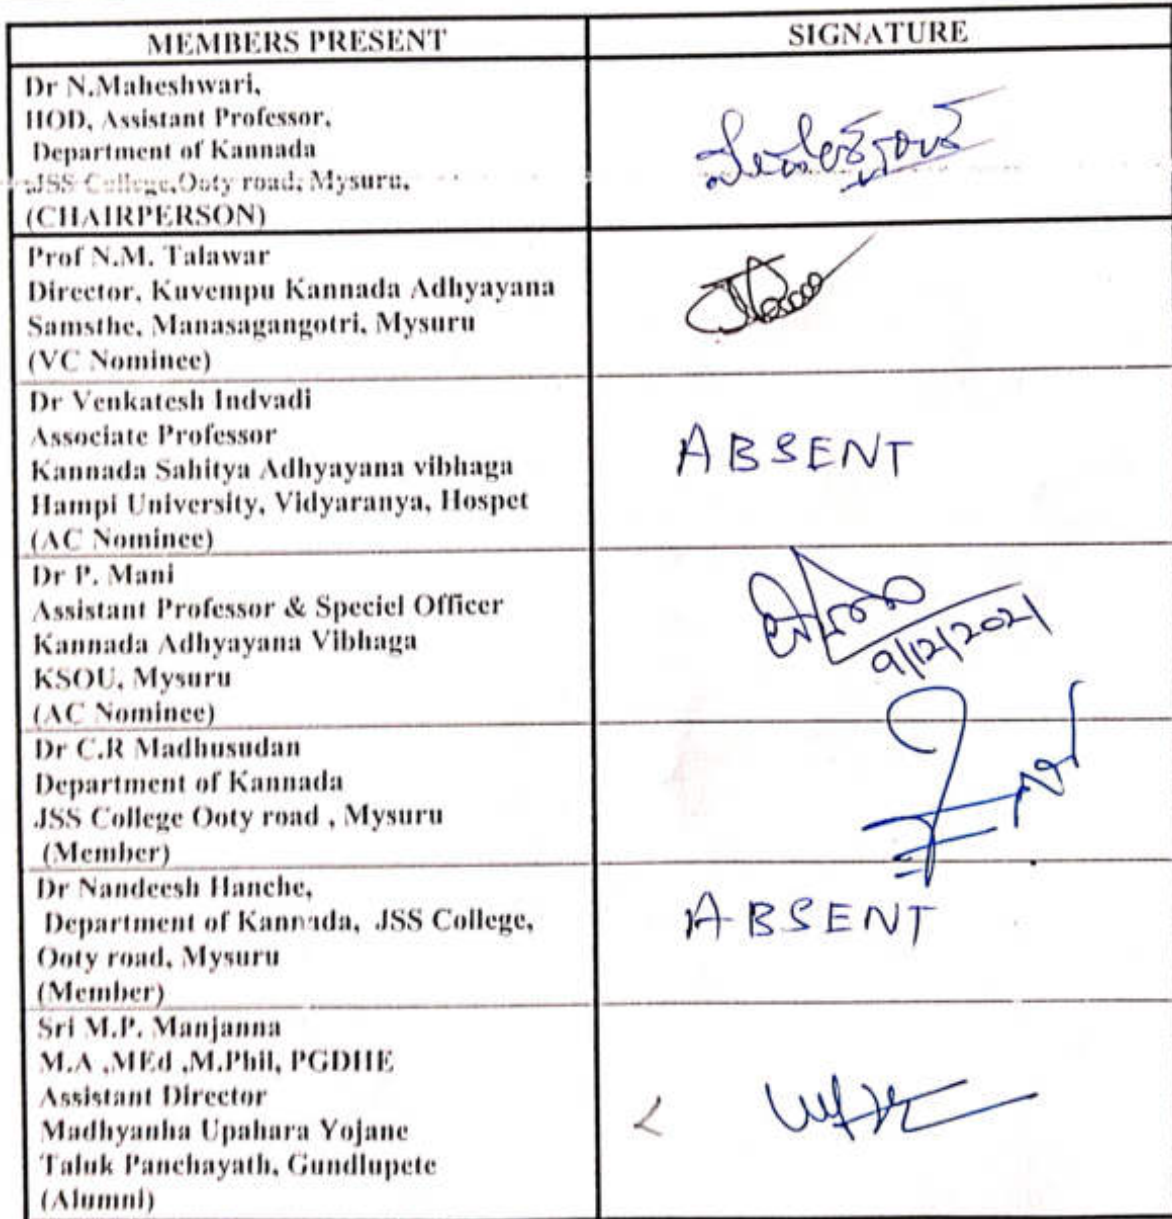 MEMBERS PRESENT
SIGNATURE
Dr N.Maheshwari,
HOD, Assistant Professor,
Department of Kannada
JSS College,Ooty road, Mysuru,
(CHAIRPERSON)
Prof N.M. Talawar
Director, Kuvempu Kannada Adhyayana
Samsthe, Manasagangotri, Mysuru
(VC Nominee)
Dr Venkatesh Indvadi
Associate Professor
Kannada Sahitya Adhyayana vibhaga
Hampi University, Vidyaranya, Hospet
(AC Nominee)
ABSENT
Dr P. Mani
Assistant Professor & Speciel Officer
Kannada Adhyayana Vibhaga
KSOU, Mysuru
(AC Nominee)
9/12/2021
Dr C.R Madhusudan
Department of Kannada
JSS College Ooty road , Mysuru
(Member)
Dr Nandeesh Hanche,
Department of Kannada, JSS College,
Ooty road, Mysuru
(Member)
ABSENT
Sri M.P. Manjanna
M.A ,MEd ,M.Phil, PGDHE
Assistant Director
Madhyanha Upahara Yojane
Taluk Panchayath, Gundlupete
(Alumni)